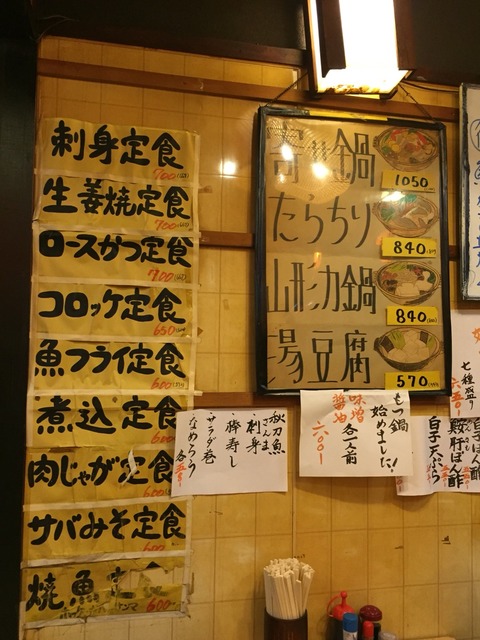 刺身定食
700
生姜焼定食
700
ロースかつ定食
700
コロッケ定食
650
魚フライ定食
600
煮込定食
600
肉じゃが定食
600
サバみそ定食
600
焼魚定
600
寄せ鍋
1050
たらちり
840
山形力鍋
840
湯豆腐
570
もつ鍋
始めました!
味噌
醤油
各一人前
六〇〇-
秋刀魚
さんま
刺身
棒寿し
サラダ巻
なめろう
七種盛り
白子ぽん酢
鮟肝ぽん酢
白子天ぷら